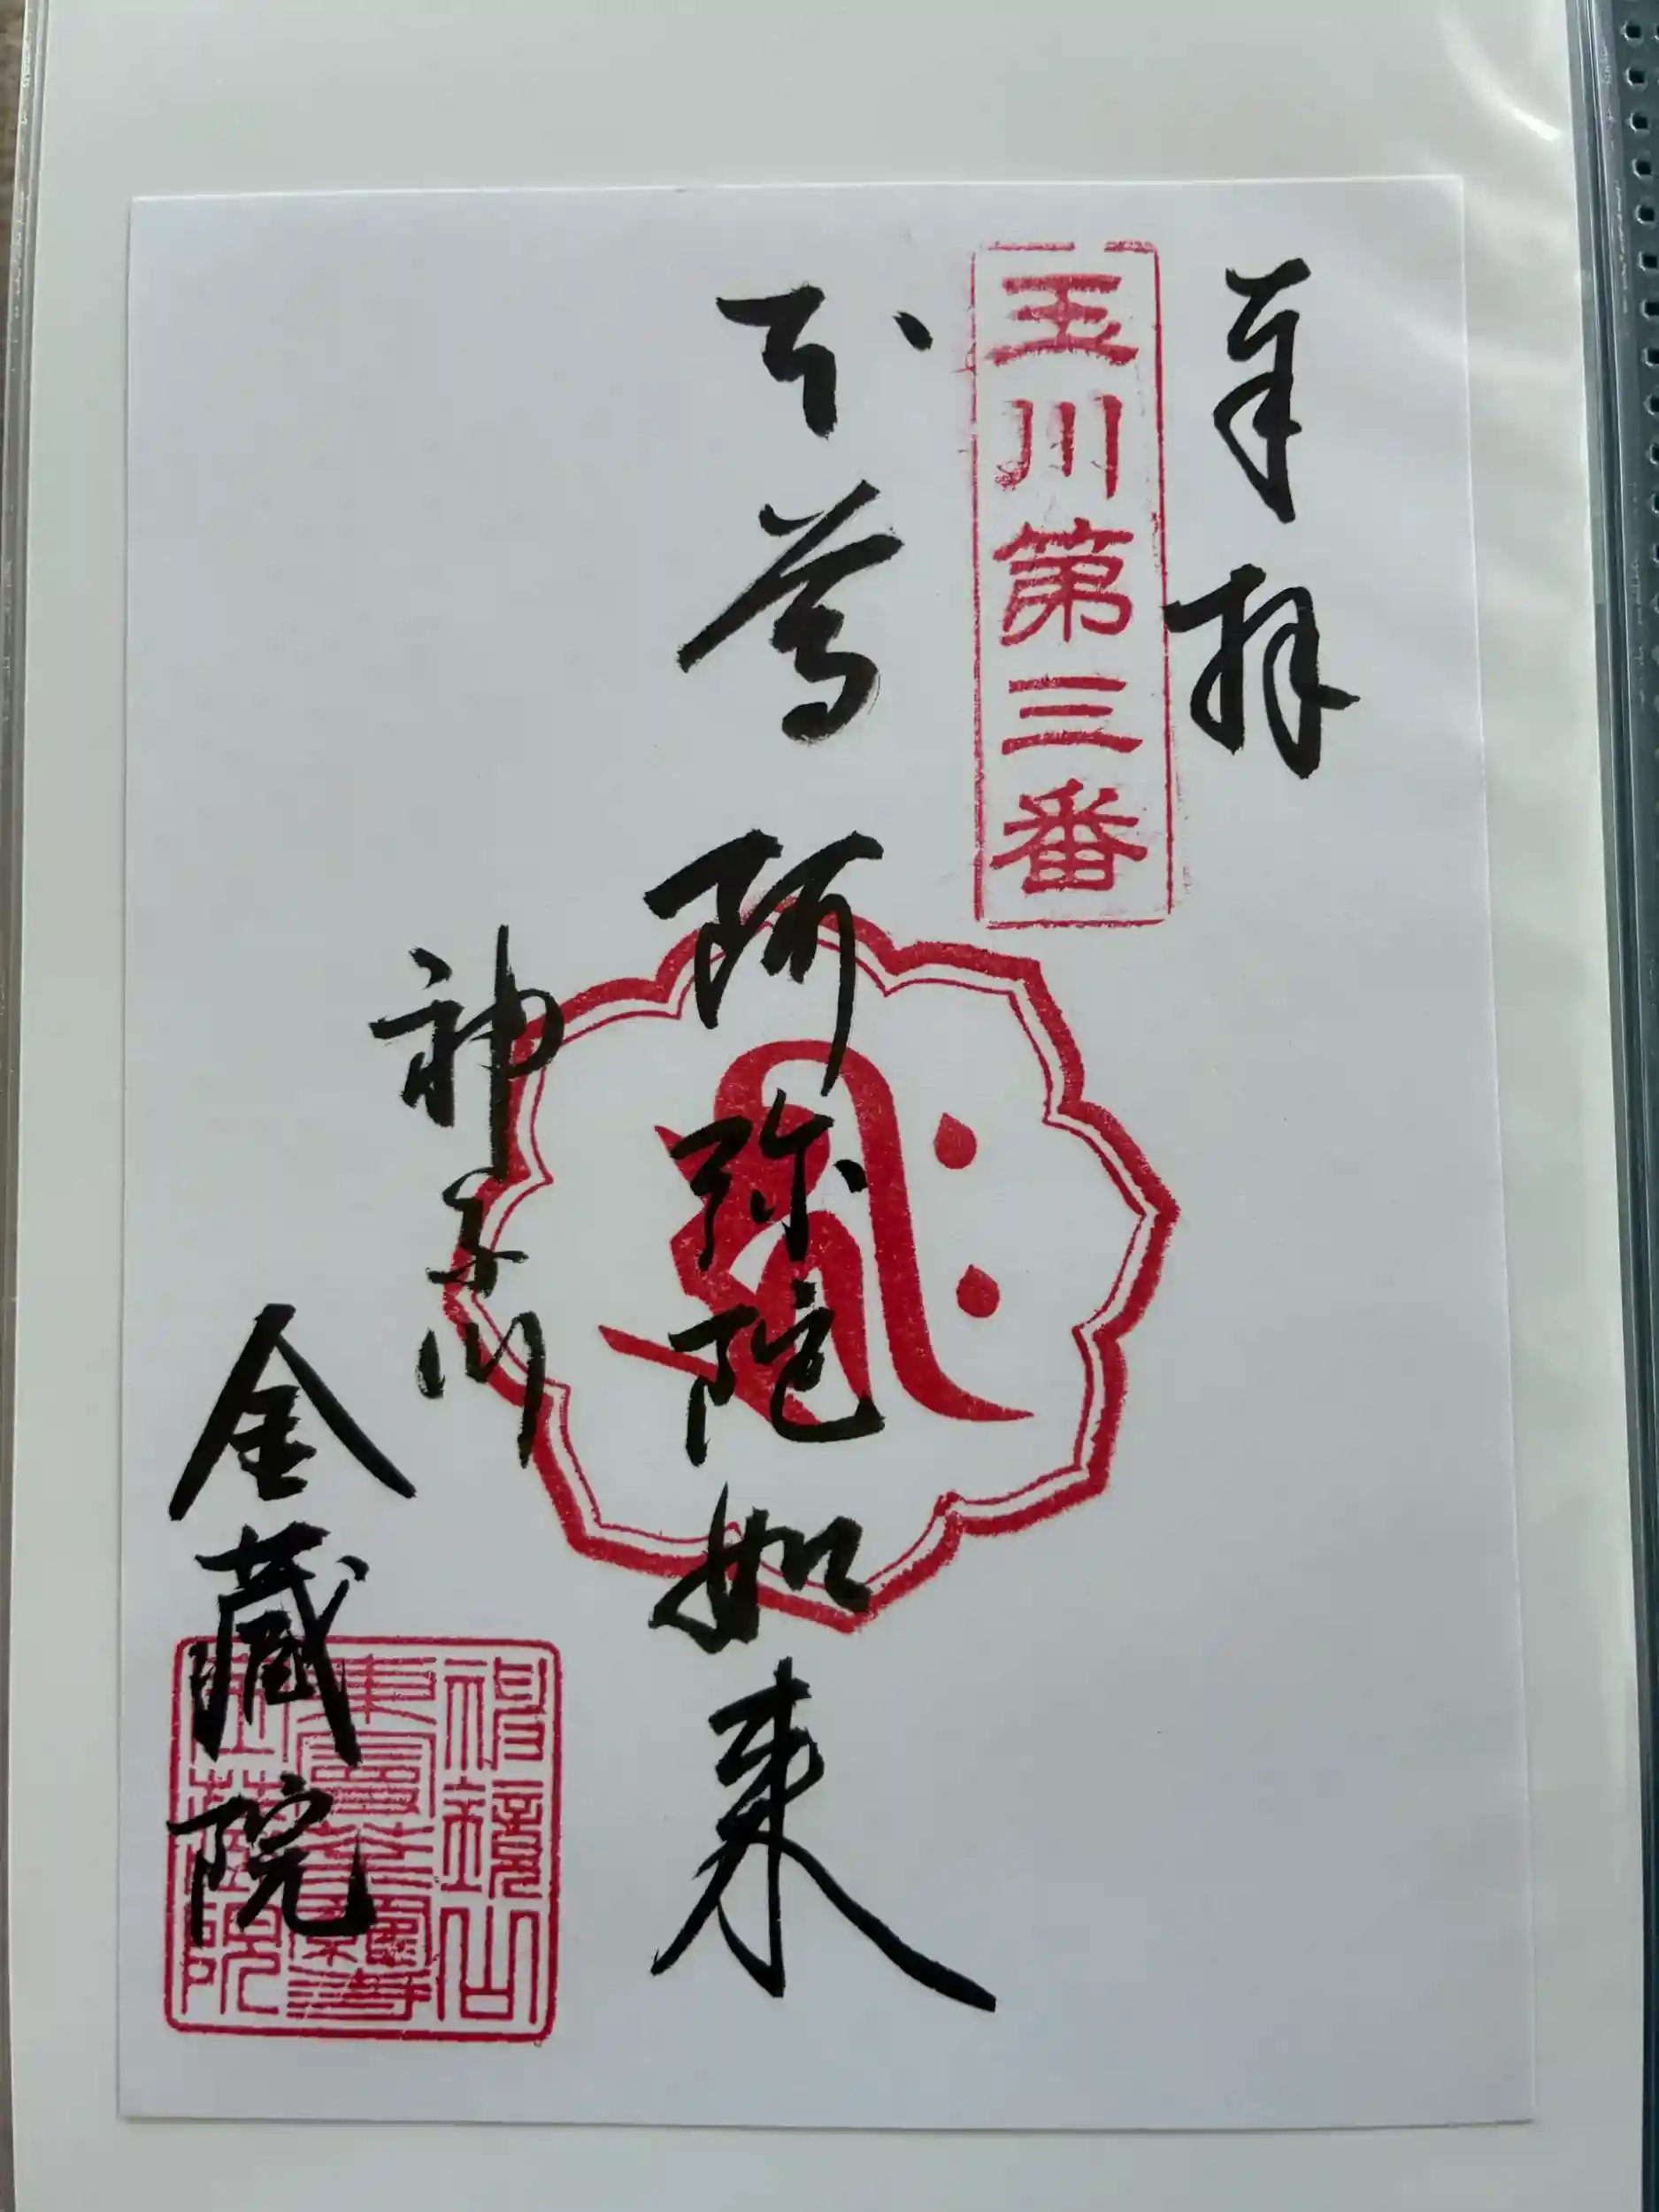 奉拝
玉川第三番
本尊 阿弥陀如来
ह्रीः
神奈川
金蔵院
神鏡山
東曼荼羅寺
金蔵院